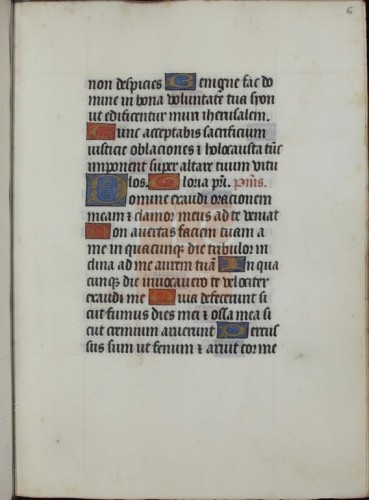 6
non despicies Benigne fac do
mine in bona voluntate tua syon
ut edificentur muri iherusalem.
Tunc acceptabis sacrificium
iusticie oblaciones ⁊ holocausta tūc
imponent super altare tuum vitu
los. Gloria pr̄i. p̄m̄s.
Domine exaudi orationem
meam ⁊ clamor meus ad te veniat
Non avertas faciem tuam a
me in quacunq̄ die tribulor in
clina ad me aurem tuā In qua
cunq̄ die invocavero te velociter
exaudi me Quia defecerunt si
cut fumus dies mei ⁊ ossa mea si
cut cremium aruerunt Percus
sus sum ut fenum ⁊ aruit cor me